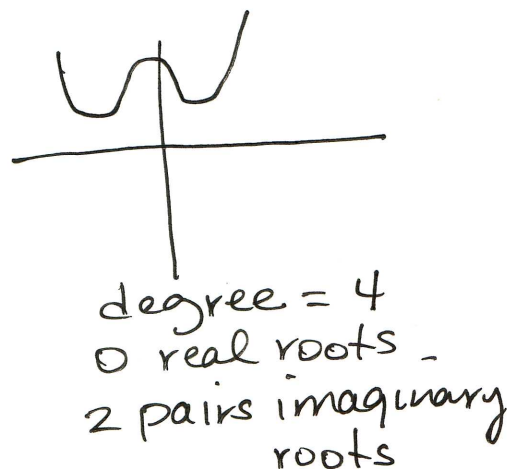 degree = 4
0 real roots.
2 pairs imaginary
roots